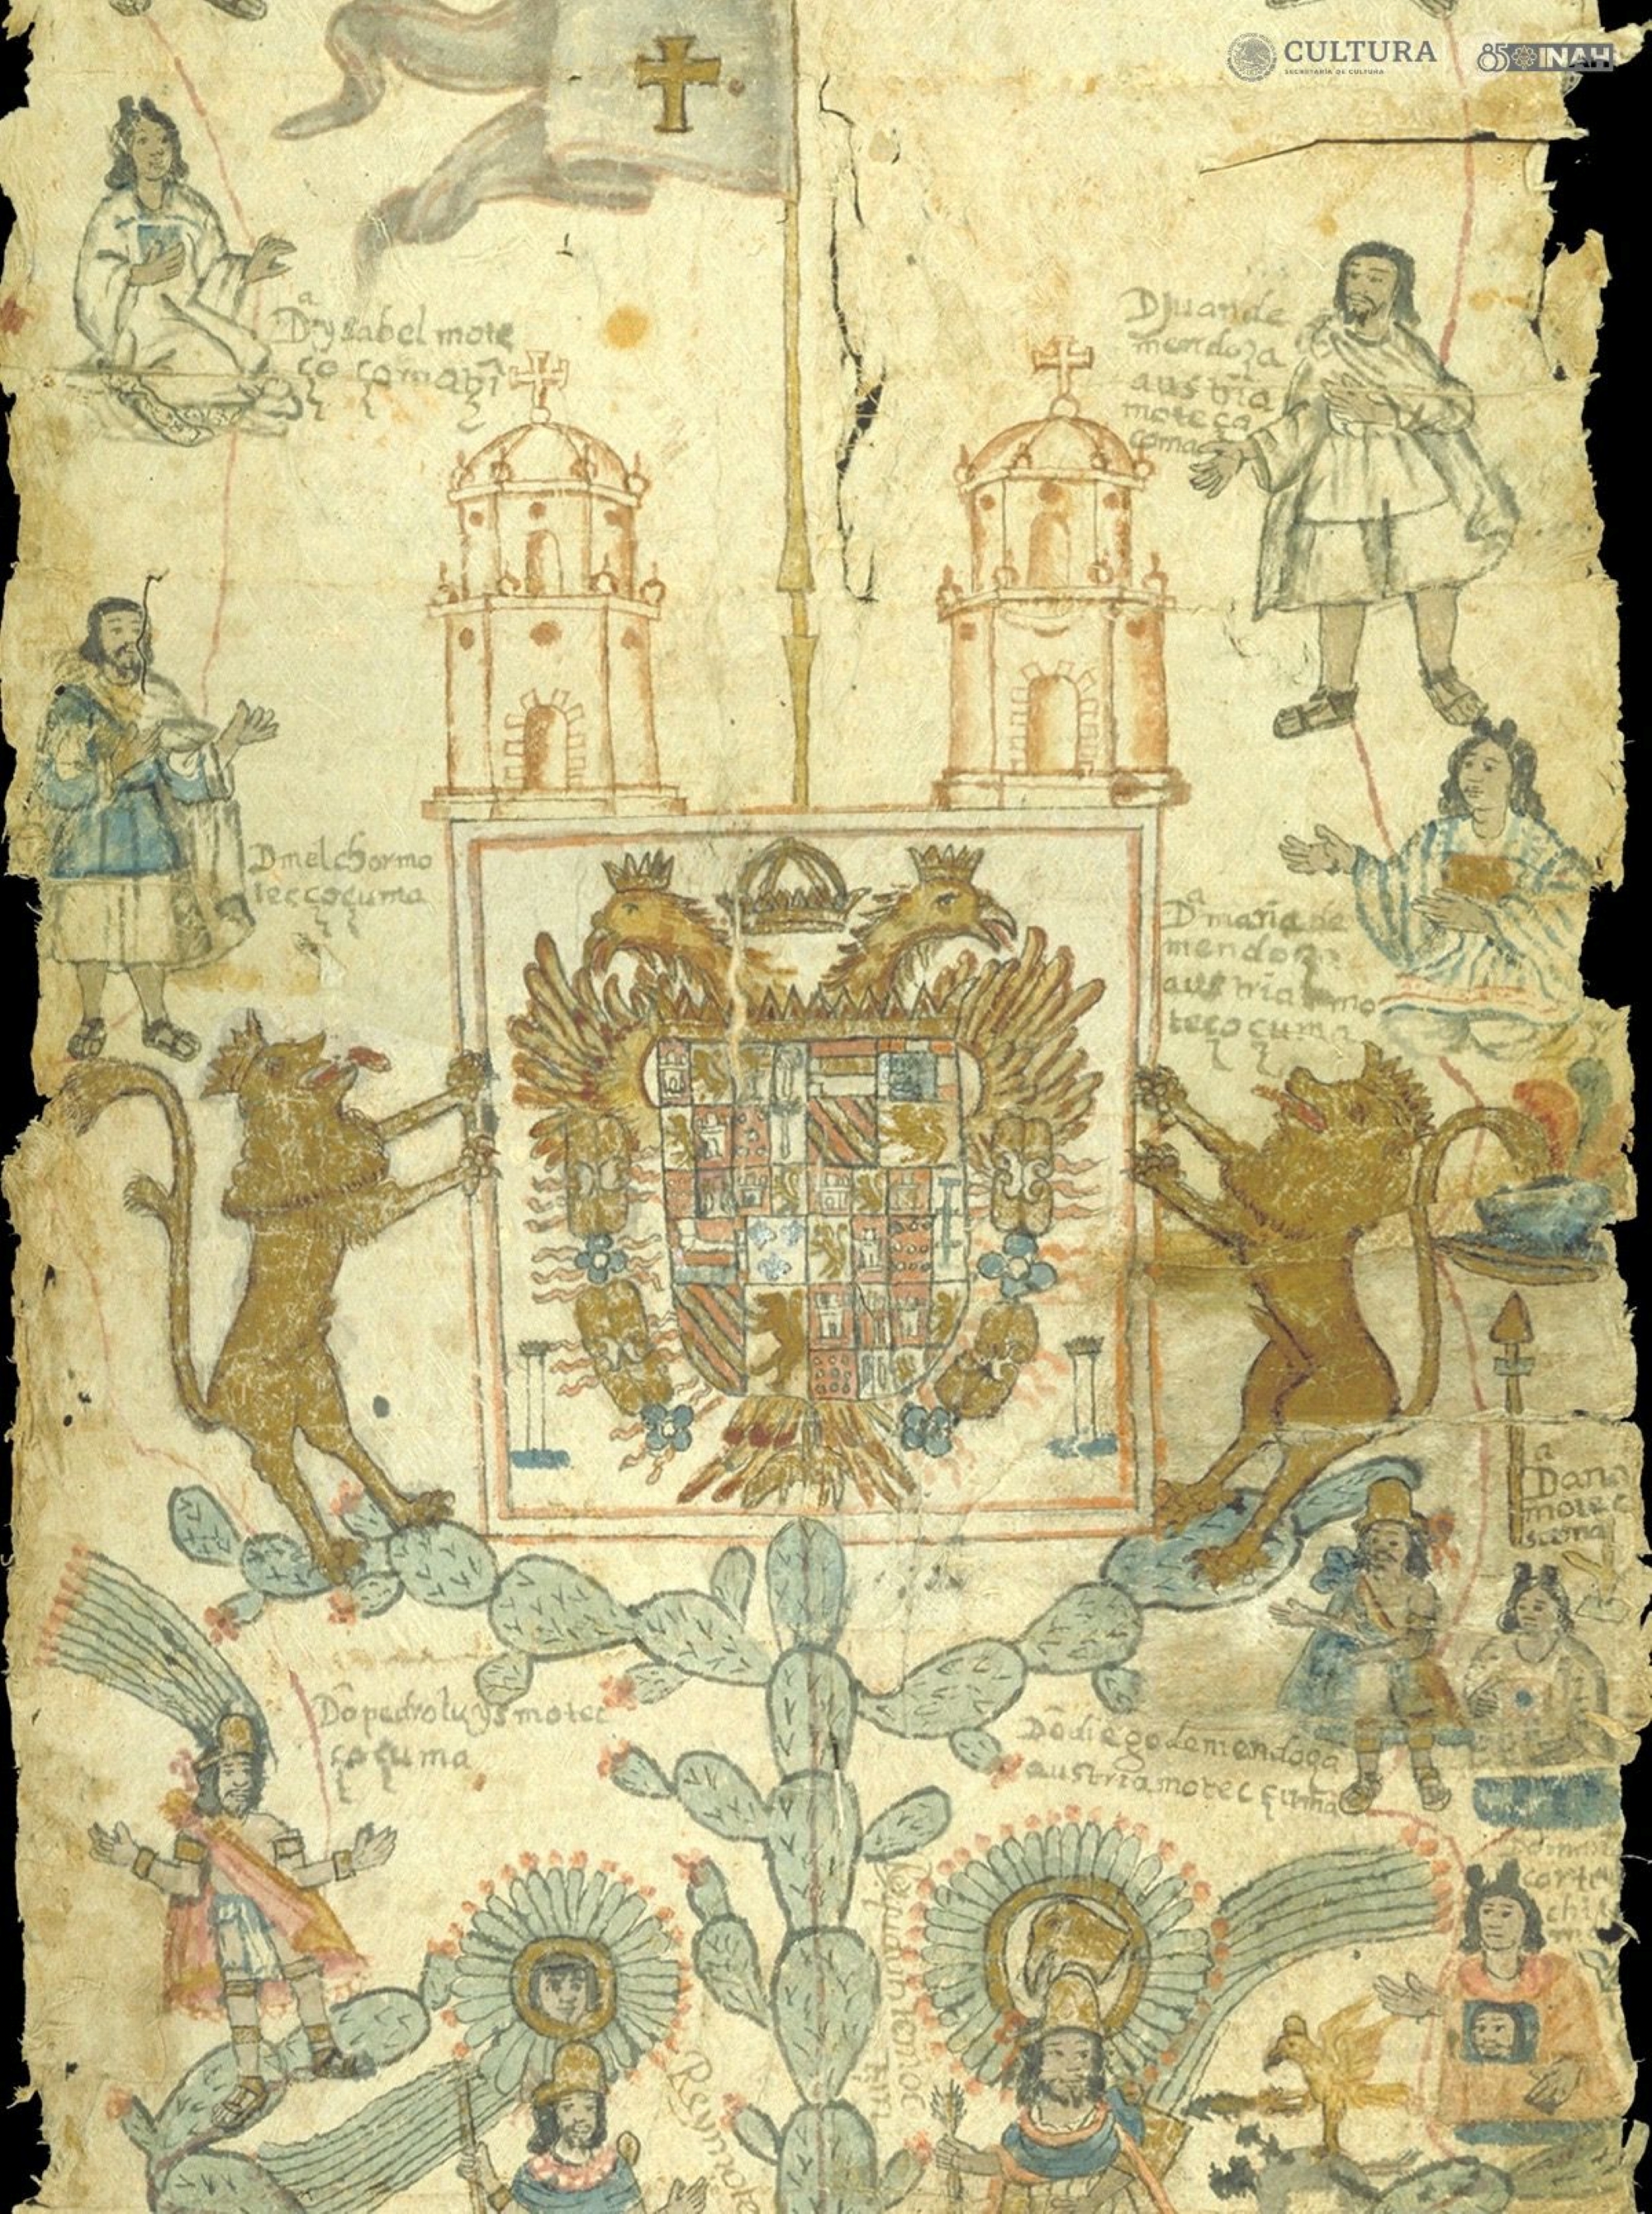 CULTURA
SECRETARÍA DE CULTURA
85 INAH
Dª ysabel mote
ço çoma
D juan de
mendoza
austria
moteço
coma
D melchor mo
tecçoçuma
Dª maria de
mendoza
austria mo
teçoçuma
Dª ana
motec
suma
Dō pedro luys motec
çoçuma
Dō diego de mendoça
austria motecçuma
corte
chi
Rey mote